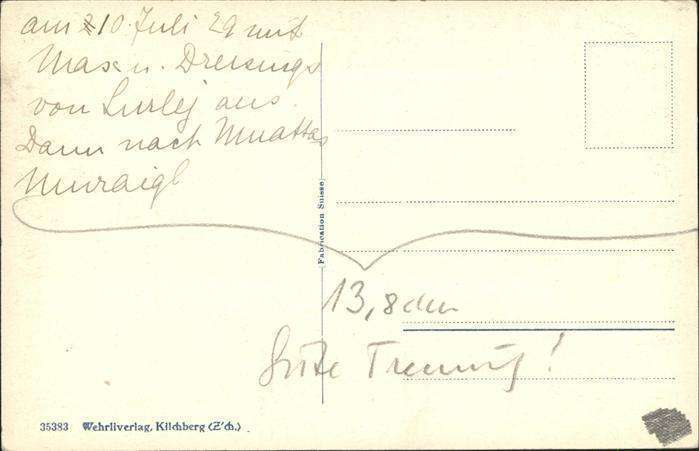 am 10. Juli 29 mit
Max u. Dreisings
von Surlej aus.
Dann nach Muottas
Muraigl
Fabrication Suisse
13,8 cm
Bitte Trennung!
35383 Wehrliverlag, Kilchberg (Z'ch.)